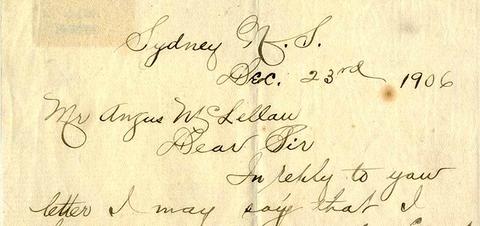 Sydney N. S.
Dec. 23rd 1906
Mr Angus McLellan
Dear Sir
In reply to your
letter I may say that I